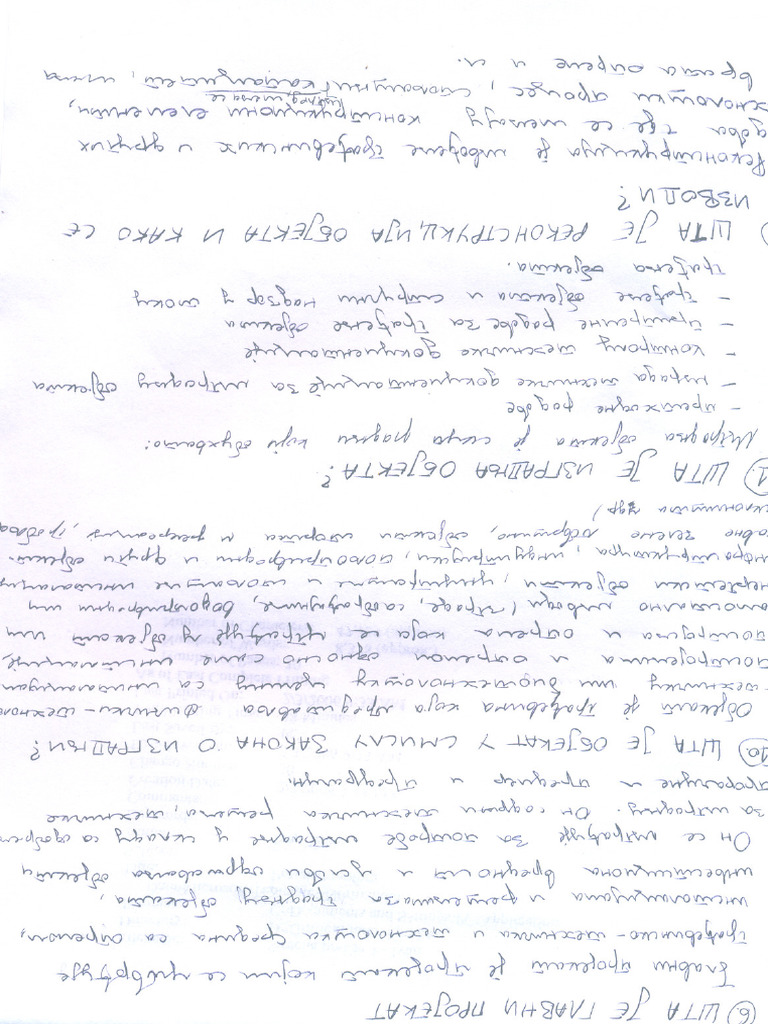 6. ШТА ЈЕ ГЛАВНИ ПРОЈЕКАТ
Главни пројекат је пројекат којим се утврђује
грађевинско-техничка и технолошка средина са опремом,
инсталацијама и решењима за градњу објекта,
инвестициона вредност и услови одржавања објекта
Он се израђује за потребе изградње у складу са одобрењем
за изградњу. Он садржи техничка решења, техничке
прорачуне и предмер и предрачун.
1a. ШТА ЈЕ ОБЈЕКАТ У СМИСЛУ ЗАКОНА О ИЗГРАДЊИ?
Објекат је грађевина која представља физичку-техничко
-техничку или биотехнолошку целину са инсталацијама
постројењима и опремом односно саме инсталације,
постројења и опрема која се уграђује у објекат или
самостално изводи (зграде, саобраћајне, водопривредни и
енергетски објекти, унутрашње и спољашње инсталације
инфраструктура, индустријски, пољопривредни и други објекти
јавно зелене површине, објекти спорта и рекреације, гробља
склоништа и др)
1. ШТА ЈЕ ИЗГРАДЊА ОБЈЕКТА?
Изградња објекта је скуп радњи који обухвата:
- претходне радове
- израда техничке документације за изградњу објекта
- контролу техничке документације
- припремне радове за грађење објекта
- грађење објекта и стручни надзор у току
грађења објекта.
) ШТА ЈЕ РЕКОНСТРУКЦИЈА ОБЈЕКТА И КАКО СЕ
ИЗВОДИ?
Реконструкција је извођење грађевинских и других
радова где се мењају конструкциони елементи,
технолошки процес, спољашњи изглед, мења се капацитет, мења
врста опреме и сл.